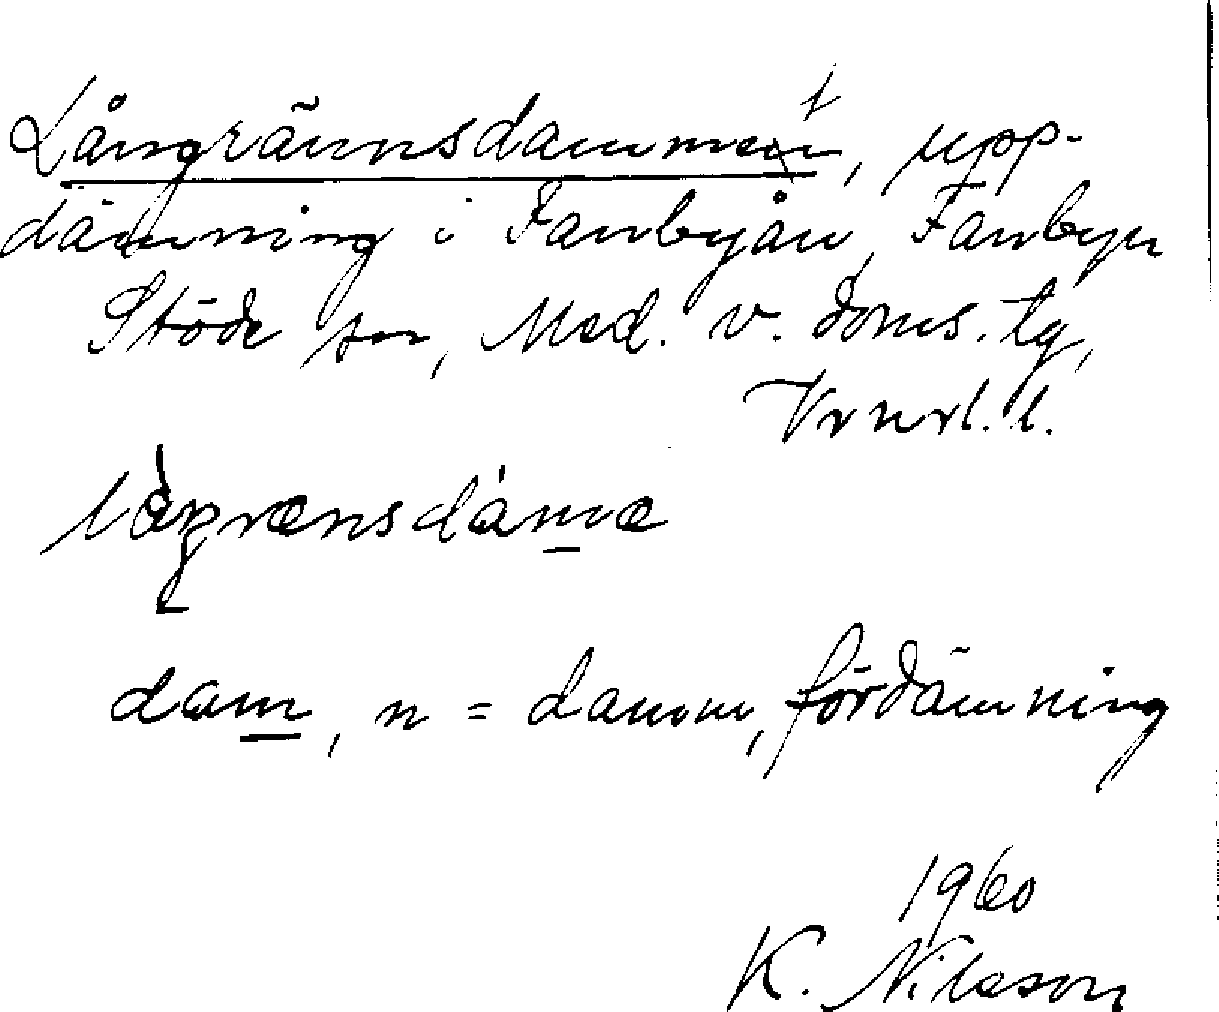 Långrännsdammet, upp-
dämning i Fanbyån, Fanbyn
Stöde sn, Med. v. doms. tg,
Vrnrl. l.
dam, n = damm, fördämning
1960
K. Nilsson